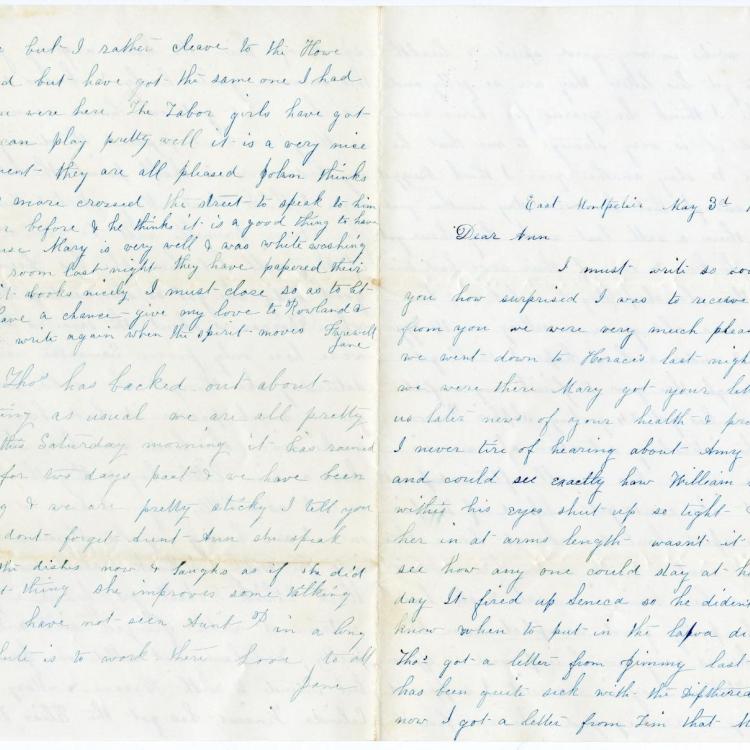 but I rather cleave to the Howe
but have got the same one I had
were here The Tabor girls have got
can play pretty well it is a very nice
they are all pleased John thinks
more crossed the street to speak to him
before & he thinks it is a good thing to have
Mary is very well & was white washing
room last night they have papered their
it looks nicely I must close so as to let
have a chance give my love to Rowland &
write again when the spirit moves Farewell
Jane
Thos has backed out about
as usual we are all pretty
this Saturday morning it has rained
for two days past & we have been
& we are pretty sticky I tell you
dont forget Aunt Ann she speak
the dishes now & laughs as if she did
thing she improves some talking
have not seen Aunt P in a long
is to work there Love to all
Jane
East Montpelier May 3d
Dear Ann
I must write so
you how surprised I was to receive
from you we were very much
we went down to Horaces last
we were there Mary got your
us later news of your health &
I never tire of hearing about Amy
and could see exactly how William
his eyes shut up so tight
her in at arms length wasn't it
see how any one could stay at
day It fired up Seneca so he diden't
know when to put in the
Thos got a letter from Jimmy last
has been quite sick with the
now I got a letter from Tim that